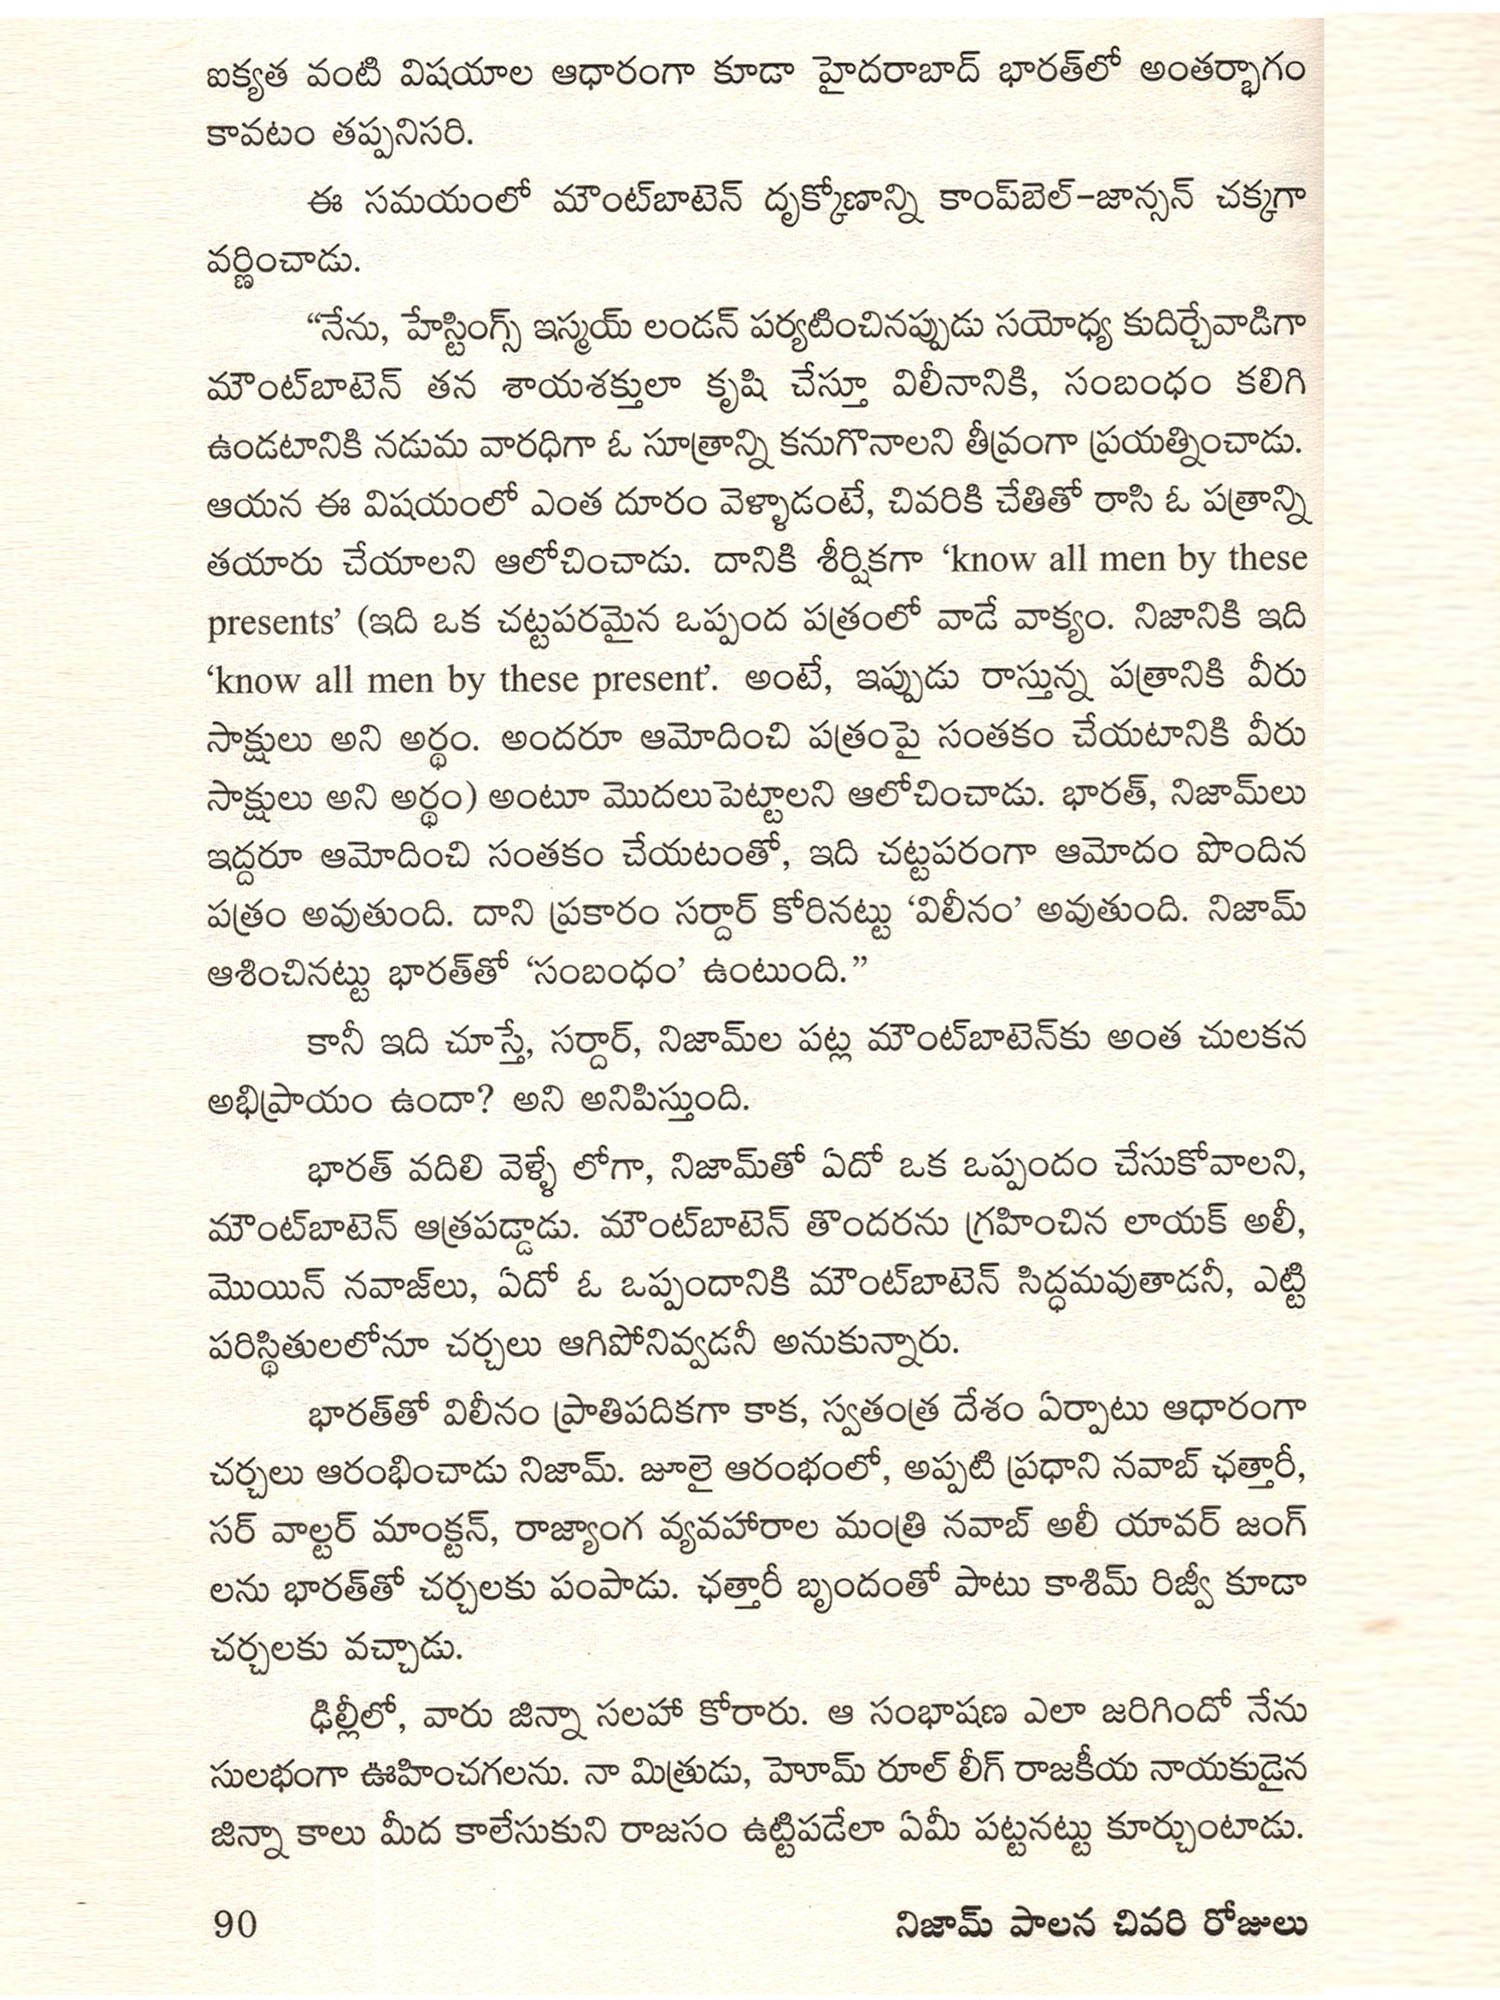 ఐక్యత వంటి విషయాల ఆధారంగా కూడా హైదరాబాద్ భారత్‌లో అంతర్భాగం
కావటం తప్పనిసరి.
ఈ సమయంలో మౌంట్‌బాటెన్ దృక్కోణాన్ని కాంప్‌బెల్-జాన్సన్ చక్కగా
వర్ణించాడు.
“నేను, హేస్టింగ్స్ ఇస్మయ్ లండన్ పర్యటించినప్పుడు సయోధ్య కుదిర్చేవాడిగా
మౌంట్‌బాటెన్ తన శాయశక్తులా కృషి చేస్తూ విలీనానికి, సంబంధం కలిగి
ఉండటానికి నడుమ వారధిగా ఓ సూత్రాన్ని కనుగొనాలని తీవ్రంగా ప్రయత్నించాడు.
ఆయన ఈ విషయంలో ఎంత దూరం వెళ్ళాడంటే, చివరికి చేతితో రాసి ఓ పత్రాన్ని
తయారు చేయాలని ఆలోచించాడు. దానికి శీర్షికగా ‘know all men by these
presents’ (ఇది ఒక చట్టపరమైన ఒప్పంద పత్రంలో వాడే వాక్యం. నిజానికి ఇది
‘know all men by these present’. అంటే, ఇప్పుడు రాస్తున్న పత్రానికి వీరు
సాక్షులు అని అర్థం. అందరూ ఆమోదించి పత్రంపై సంతకం చేయటానికి వీరు
సాక్షులు అని అర్థం) అంటూ మొదలుపెట్టాలని ఆలోచించాడు. భారత్, నిజామ్‌లు
ఇద్దరూ ఆమోదించి సంతకం చేయటంతో, ఇది చట్టపరంగా ఆమోదం పొందిన
పత్రం అవుతుంది. దాని ప్రకారం సర్దార్ కోరినట్టు ‘విలీనం’ అవుతుంది. నిజామ్
ఆశించినట్టు భారత్‌తో ‘సంబంధం’ ఉంటుంది.”
కానీ ఇది చూస్తే, సర్దార్, నిజామ్‌ల పట్ల మౌంట్‌బాటెన్‌కు అంత చులకన
అభిప్రాయం ఉందా? అని అనిపిస్తుంది.
భారత్ వదిలి వెళ్ళే లోగా, నిజామ్‌తో ఏదో ఒక ఒప్పందం చేసుకోవాలని,
మౌంట్‌బాటెన్ ఆత్రపడ్డాడు. మౌంట్‌బాటెన్ తొందరను గ్రహించిన లాయక్ అలీ,
మొయిన్ నవాజ్‌లు, ఏదో ఓ ఒప్పందానికి మౌంట్‌బాటెన్ సిద్ధమవుతాడనీ, ఎట్టి
పరిస్థితులలోనూ చర్చలు ఆగిపోనివ్వడనీ అనుకున్నారు.
భారత్‌తో విలీనం ప్రాతిపదికగా కాక, స్వతంత్ర దేశం ఏర్పాటు ఆధారంగా
చర్చలు ఆరంభించాడు నిజామ్. జూలై ఆరంభంలో, అప్పటి ప్రధాని నవాబ్ ఛత్తారీ,
సర్ వాల్టర్ మాంక్టన్, రాజ్యాంగ వ్యవహారాల మంత్రి నవాబ్ అలీ యావర్ జంగ్
లను భారత్‌తో చర్చలకు పంపాడు. ఛత్తారీ బృందంతో పాటు కాశిమ్ రిజ్వీ కూడా
చర్చలకు వచ్చాడు.
ఢిల్లీలో, వారు జిన్నా సలహా కోరారు. ఆ సంభాషణ ఎలా జరిగిందో నేను
సులభంగా ఊహించగలను. నా మిత్రుడు, హెూమ్ రూల్ లీగ్ రాజకీయ నాయకుడైన
జిన్నా కాలు మీద కాలేసుకుని రాజసం ఉట్టిపడేలా ఏమీ పట్టనట్టు కూర్చుంటాడు.
90
నిజామ్ పాలన చివరి రోజులు